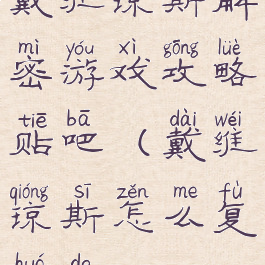 戴维琼斯解
mì yóu xì gōng lüè
密游戏攻略
tiē bā dài wéi
贴吧（戴维
qióng sī zěn me fù
琼斯怎么复
huó de